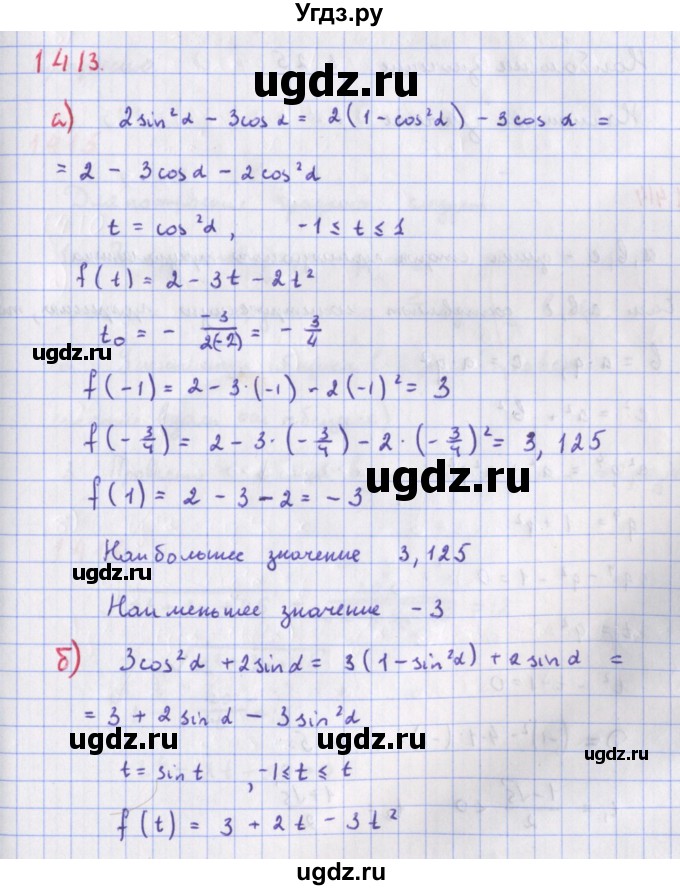 Угдз.ру
1413.
ugdz.ru
а) 2sin²α - 3cos α = 2(1 - cos²α) - 3cos α =
= 2 - 3cosα - 2cos²α
t = cos²α, -1 ≤ t ≤ 1
f(t) = 2 - 3t - 2t²
t₀ = - -3/2(-2) = - 3/4
ugdz.ru
f(-1) = 2 - 3·(-1) - 2(-1)² = 3
f(-3/4) = 2 - 3·(-3/4) - 2·(-3/4)² = 3,125
ugdz.ru
f(1) = 2 - 3 - 2 = -3
Наибольшее значение 3,125
ugdz.ru
Наименьшее значение -3
б) 3cos²α + 2sinα = 3(1 - sin²α) + 2sinα =
= 3 + 2sinα - 3sin²α
ugdz.ru
ugdz.ru
t = sin t, -1 ≤ t ≤ t
f(t) = 3 + 2t - 3t²
ugdz.ru